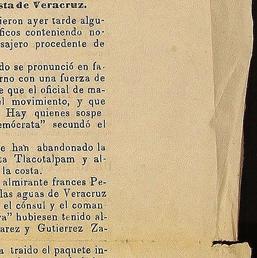 sta de Veracruz.
ieron ayer tarde algu-
ficos conteniendo no-
sajero procedente de
do se pronunció en fa-
rno con una fuerza de
e que el oficial de ma-
el movimiento, y que
Hay quienes sospe
emócrata" secundó el
e han abandonado la
ta Tlacotalpam y al-
la costa.
almirante frances Pe-
las aguas de Veracruz
el cónsul y el coman-
ra" hubiesen tenido al-
arez y Gutierrez Za-
a traido el paquete in-